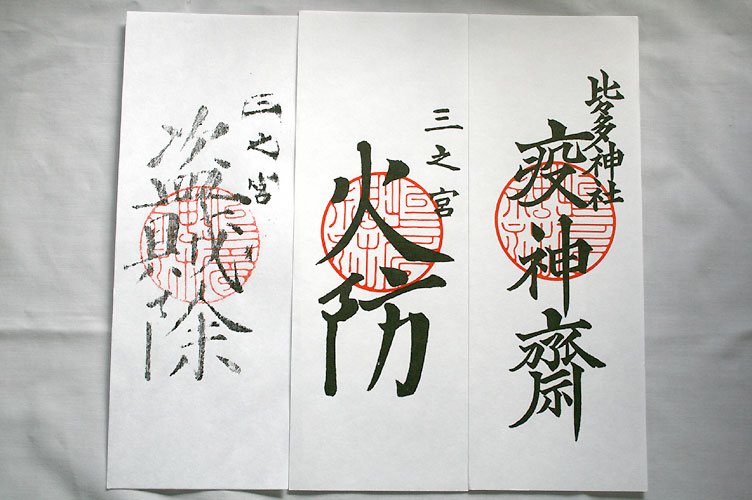 比々多神社
疫神齋
三之宮
火防
三之宮
盗賊除